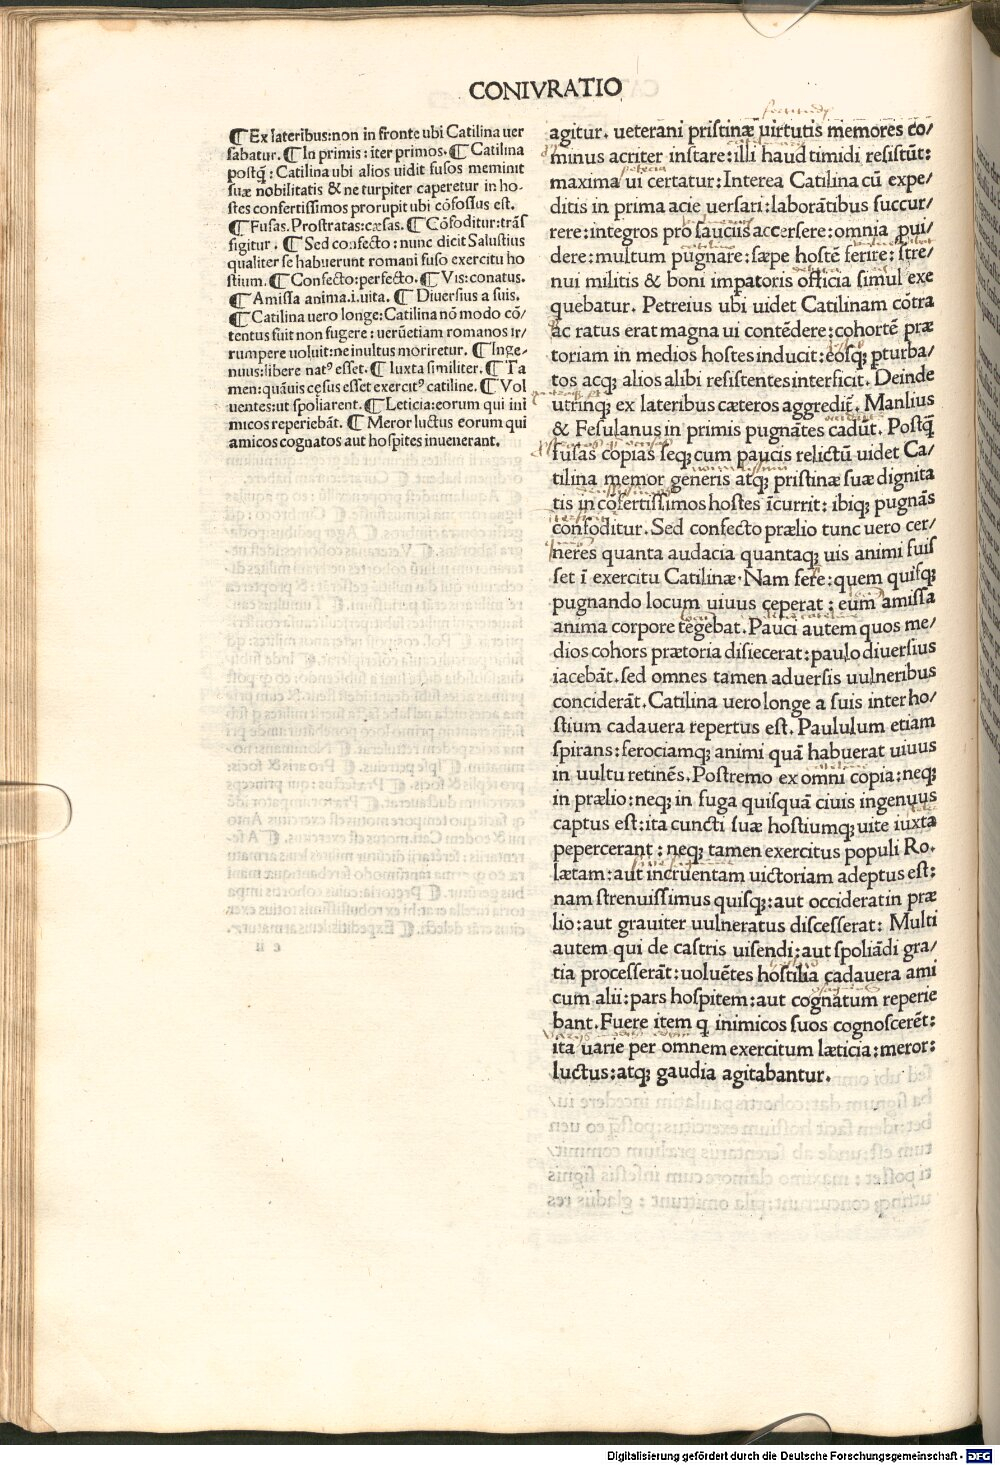 CONIVRATIO
¶ Ex lateribus:non in fronte ubi Catilina uer
sabatur. ¶ In primis: iter primos. ¶ Catilina
postq̃: Catilina ubi alios uidit fusos meminit
suæ nobilitatis & ne turpiter caperetur in ho-
stes confertissimos prorupit ubi cõfossus est.
¶ Fusas. Prostratas: cæsas. ¶ Cõfoditur: trãs
figitur. ¶ Sed confecto: nunc dicit Salustius
qualiter se habuerunt romani fuso exercitu ho
stium. ¶ Confecto: perfecto. ¶ Vis: conatus.
¶ Amissa anima.i.uita. ¶ Diuersius a suis.
¶ Catilina uero longe: Catilina nõ modo cõ/
tentus fuit non fugere: uerũetiam romanos ir/
rumpere uoluit: ne inultus moriretur. ¶ Inge-
nuus: libere natꝰ esset. ¶ Iuxta similiter. ¶ Ta
men: quãuis cęsus esset exercitꝰ catiline. ¶ Vol
uentes: ut spoliarent. ¶ Leticia: eorum qui ini
micos reperiebãt. ¶ Meror luctus eorum qui
amicos cognatos aut hospites inuenerant.
agitur. ueterani pristinæ uirtutis memores co/
minus acriter instare: illi haud timidi resistũt:
maxima ui certatur: Interea Catilina cũ expe/
ditis in prima acie uersari: laborãtibus succur/
rere: integros pro sauciis accersere: omnia pui/
dere: multum pugnare: sæpe hostẽ ferire: stre/
nui militis & boni impatoris officia simul exe
quebatur. Petreius ubi uidet Catilinam cõtra
ac ratus erat magna ui contẽdere: cohortẽ præ
toriam in medios hostes inducit: eosq; pturba/
tos acq; alios alibi resistentes interficit. Deinde
utrinq; ex lateribus cæteros aggredit̃. Manlius
& Fesulanus in primis pugnãtes cadũt. Postq̃
fusas copias seq; cum paucis relictũ uidet Ca/
tilina memor generis atq; pristinæ suæ dignita
tis in cõfertissimos hostes ĩcurrit: ibiq; pugnãs
confoditur. Sed confecto prælio tunc uero cer/
neres quanta audacia quantaq; uis animi fuis
set ĩ exercitu Catilinæ. Nam fere: quem quisq;
pugnando locum uiuus ceperat: eum amissa
anima corpore tegebat. Pauci autem quos me/
dios cohors prætoria disiecerat: paulo diuersius
iacebãt. sed omnes tamen aduersis uulneribus
conciderãt. Catilina uero longe a suis inter ho/
stium cadauera repertus est. Paululum etiam
spirans: ferociamq; animi quã habuerat uiuus
in uultu retinẽs. Postremo ex omni copia: neq;
in prælio: neq; in fuga quisquã ciuis ingenuus
captus est: ita cuncti suæ hostiumq; uite iuxta
pepercerant: neq; tamen exercitus populi Ro.
lætam: aut incruentam uictoriam adeptus est:
nam strenuissimus quisq; aut occiderat in præ
lio: aut grauiter uulneratus discesserat: Multi
autem qui de castris uisendi: aut spoliãdi gra/
tia processerãt: uoluẽtes hostilia cadauera ami
cum alii: pars hospitem: aut cognatum reperie
bant. Fuere item q inimicos suos cognoscerẽt:
ita uarie per omnem exercitum læticia: meror:
luctus: atq; gaudia agitabantur.
Digitalisierung gefördert durch die Deutsche Forschungsgemeinschaft - DFG